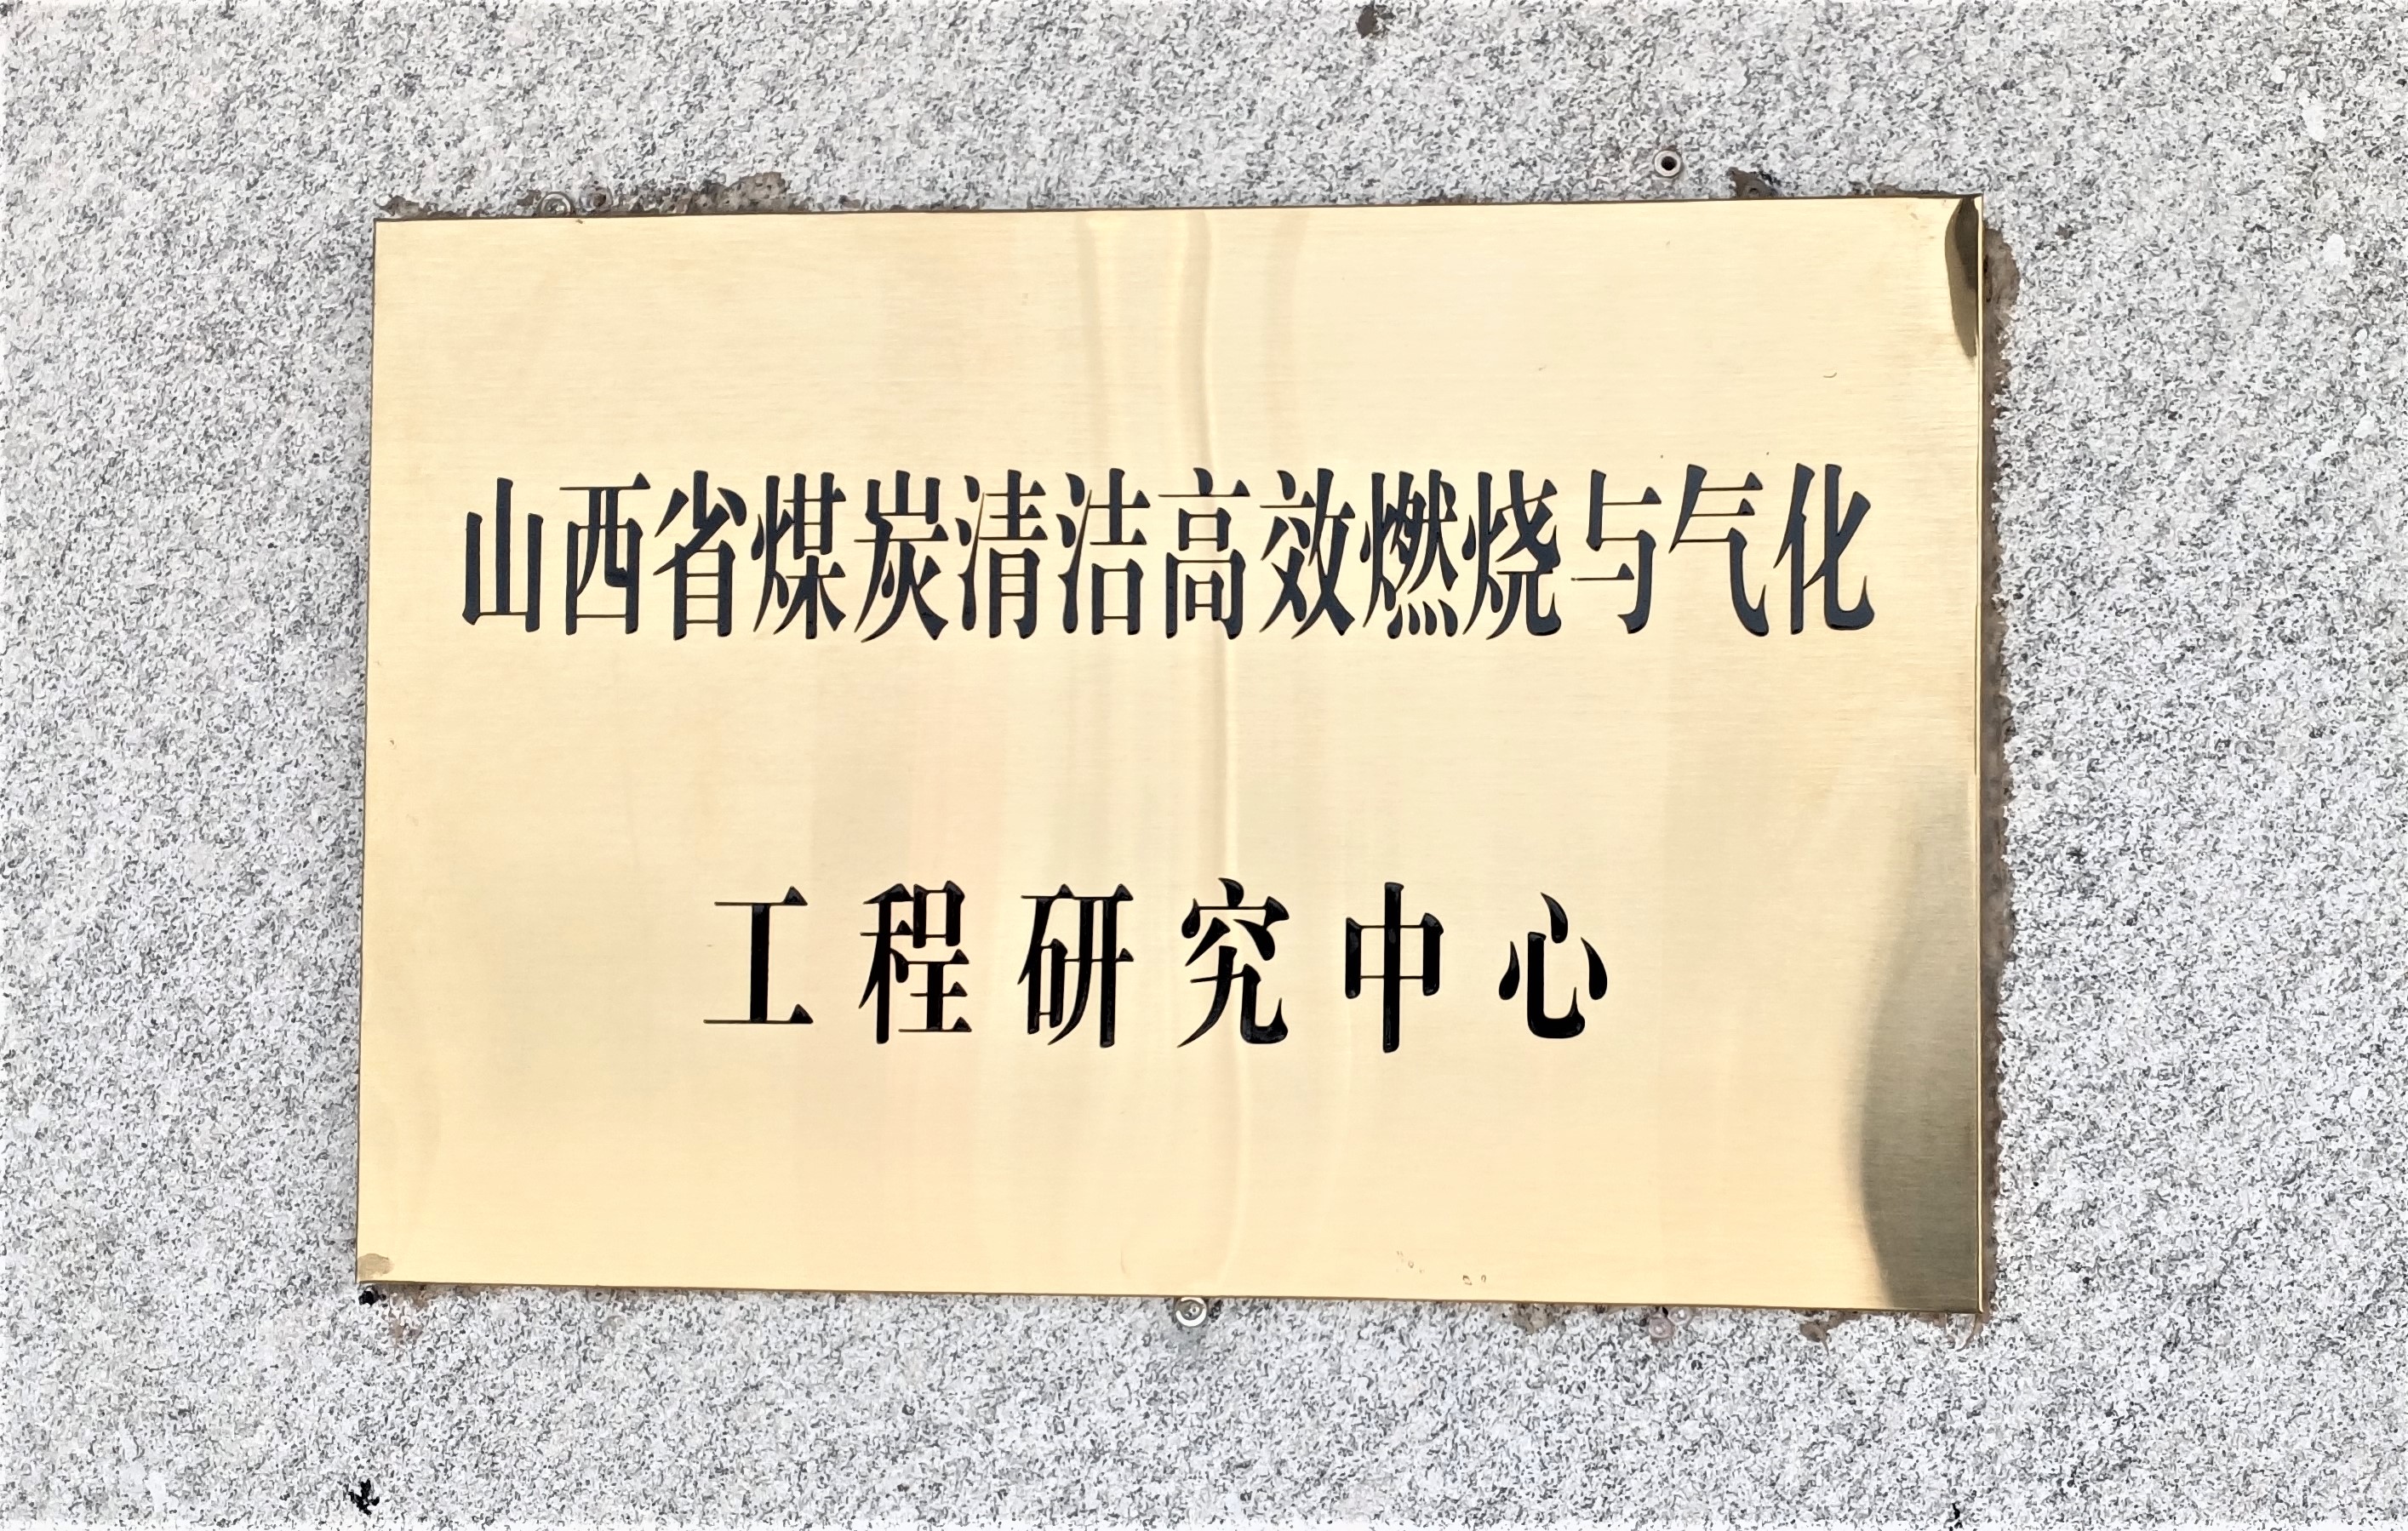 山西省煤炭清洁高效燃烧与气化
工程研究中心